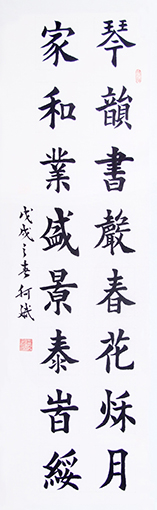 琴韻書聲春花秌月
家和業盛景泰旹綏
戊戌之春何斌